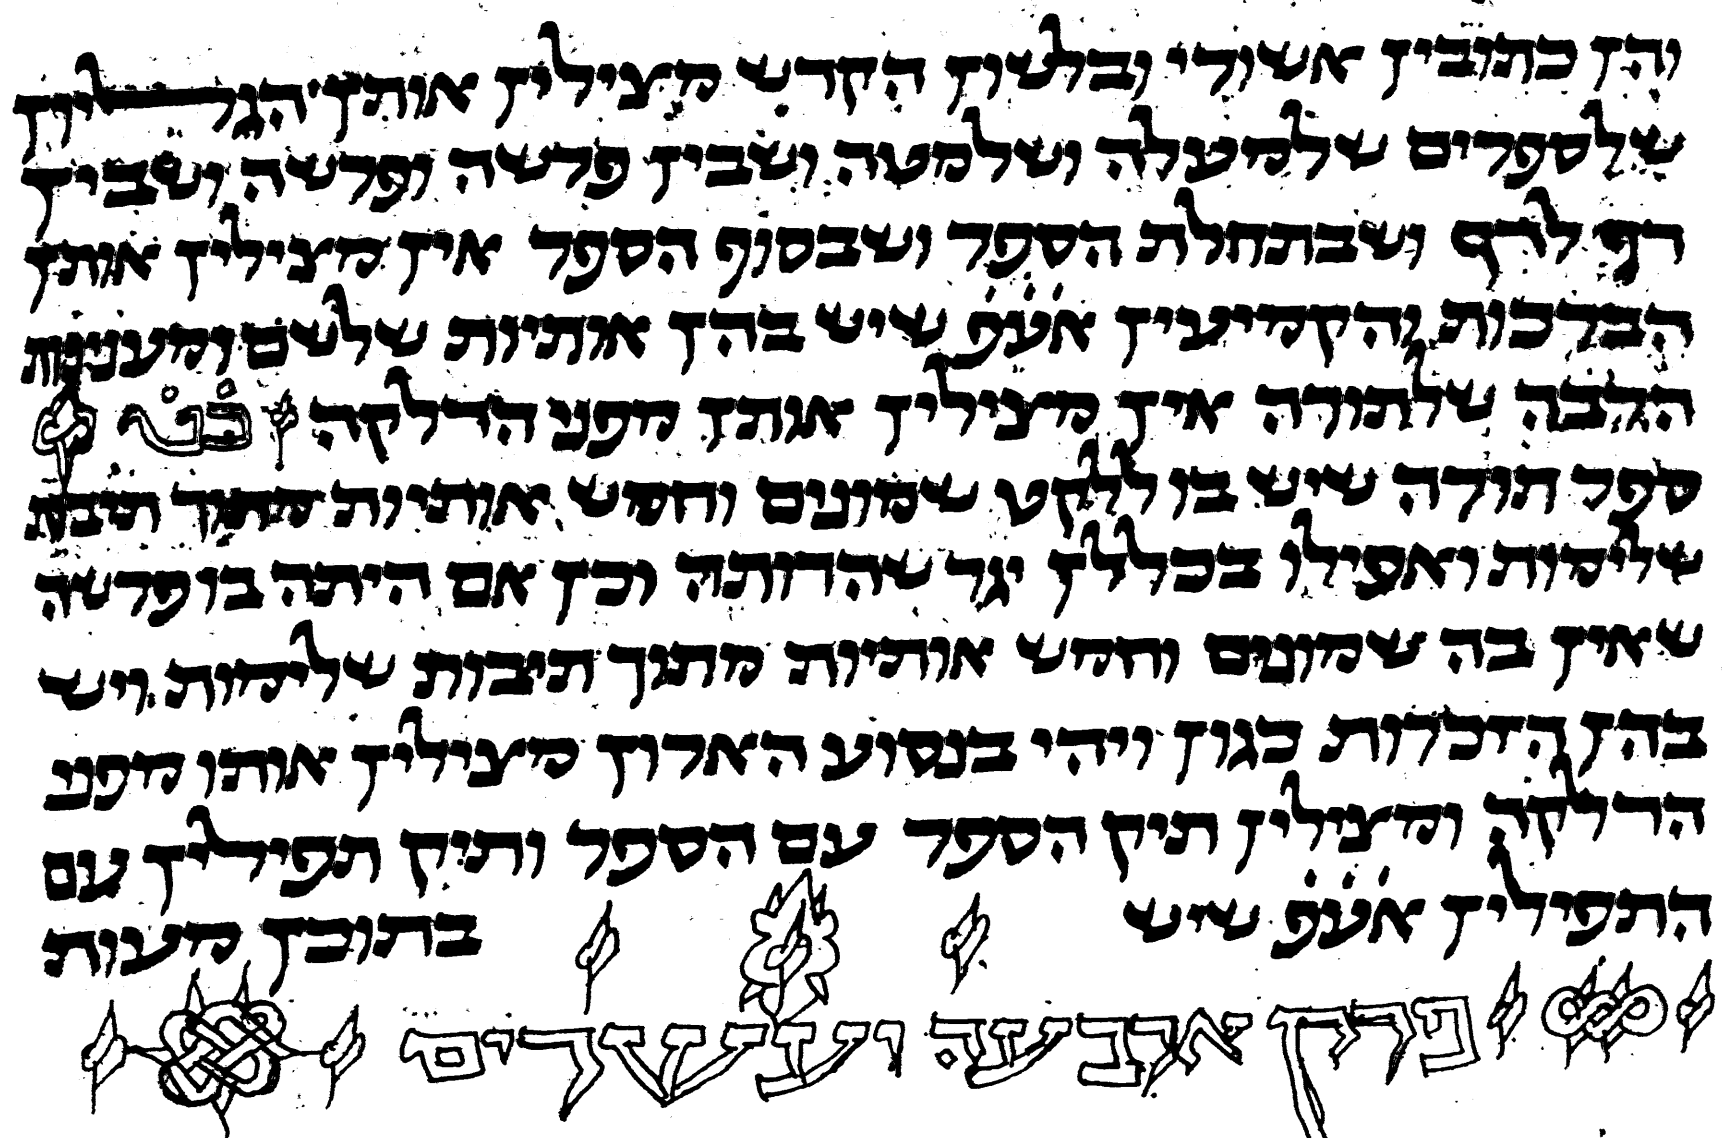 והן כתובין אשורי ובלשון הקדש מצילין אותן הגליון
שלספרים שלמעלה ושלמטה ושבין פרשה ופרשה ושבין
דף לדף ושבתחלת הספר ושבסוף הספר אין מצילין אותן
הברכות והקמיעין אעפ שיש בהן אותיות שלשם ומענינות
הרבה שלתורה אין מצילין אותן מפני הדלקה
ספר תורה שיש בו ללקט שמונים וחמש אותיות מתוך תיבות
שלימות ואפילו בכללן יגר שהדותה וכן אם היתה בו פרשה
שאין בה שמונים וחמש אותיות מתוך תיבות שלימות ויש
בהן הזכרות כגון ויהי בנסוע הארון מצילין אותו מפני
הדלקה ומצילין תיק הספר עם הספר ותיק תפילין עם
התפילין אעפ שיש בתוכן מעות
פרק ארבעה ועשרים